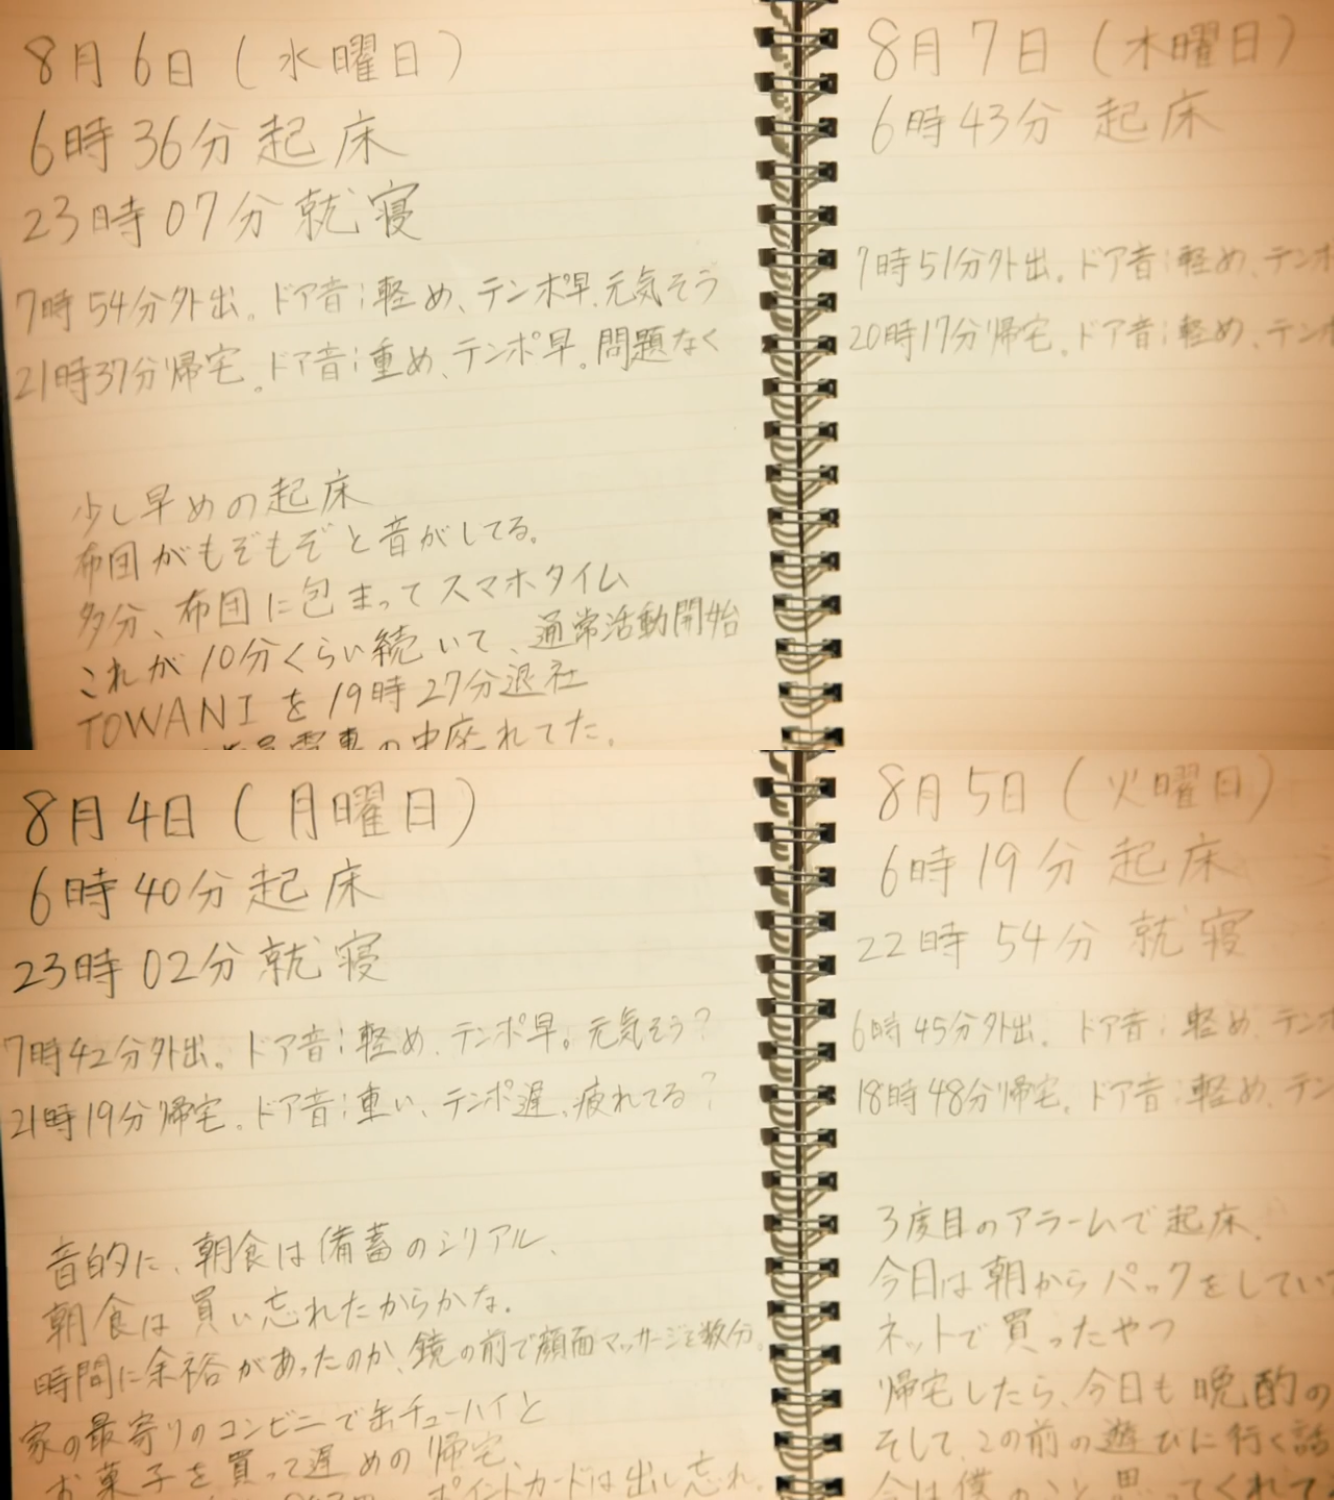 8月6日(水曜日)
6時36分起床
23時07分就寝
7時54分外出。ドア音:軽め、テンポ早、元気そう
21時37分帰宅。ドア音:重め、テンポ早。問題なく
少し早めの起床
布団がもぞもぞと音がしてる。
多分、布団に包まってスマホタイム
これが10分くらい続いて、通常活動開始
TOWANIを19時27分退社
電車の中座れてた。
8月7日(木曜日)
6時43分起床
7時51分外出。ドア音:軽め、テンポ
20時17分帰宅。ドア音:軽め、テンポ
8月4日(月曜日)
6時40分起床
23時02分就寝
7時42分外出。ドア音:軽め、テンポ早。元気そう?
21時19分帰宅。ドア音:重い、テンポ遅、疲れてる?
音的に、朝食は備蓄のシリアル、
朝食は買い忘れたからかな。
時間に余裕があったのか、鏡の前で顔面マッサージを数分。
家の最寄りのコンビニで缶チューハイと
お菓子を買って遅めの帰宅、
ポイントカードは出し忘れ。
8月5日(火曜日)
6時19分起床
22時54分就寝
6時45分外出。ドア音:軽め、テンポ
18時48分帰宅。ドア音:軽め、テン
3度目のアラームで起床。
今日は朝からパックをしてい
ネットで買ったやつ
帰宅したら、今日も晩酌の
そして、この前の遊びに行く話
今は僕のこと思ってくれて